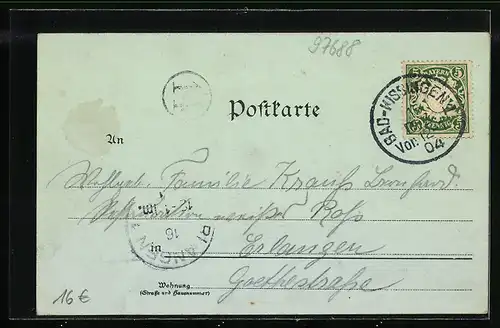 97688
BAYERN
5 5
BAD-KISSINGEN
Vor.
04
Postkarte
An
Wohlgeb. Familie Krauß Leonhard.
Restauration weißes Roß
in
ERLANGEN
16
Erlangen
Goethestraße
Wohnung
(Straße und Hausnummer)
16 €